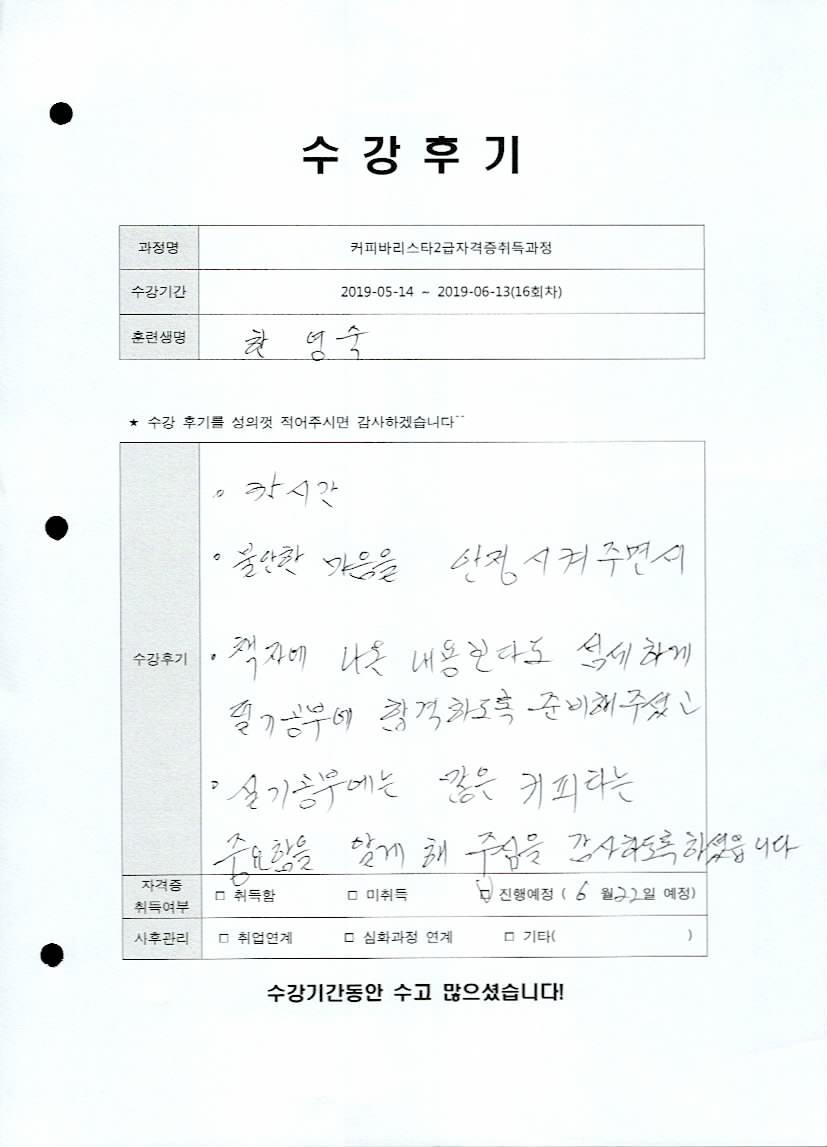 수 강 후 기
과정명 커피바리스타2급자격증취득과정
수강기간 2019-05-14 ~ 2019-06-13(16회차)
훈련생명 한 영숙
★ 수강 후기를 성의껏 적어주시면 감사하겠습니다~~
수강후기
시간
불안한 마음을 안정시켜주면서
책자에 나온 내용 섬세하게
필기공부에 합격하도록 준비해주셨고
실기공부에는 같은 커피라는
중요함을 알게 해 주심을 감사하도록하셨읍니다
자격증 취득여부 □ 취득함 □ 미취득 □ 진행예정 ( 6 월22일 예정)
사후관리 □ 취업연계 □ 심화과정 연계 □ 기타( )
수강기간동안 수고 많으셨습니다!